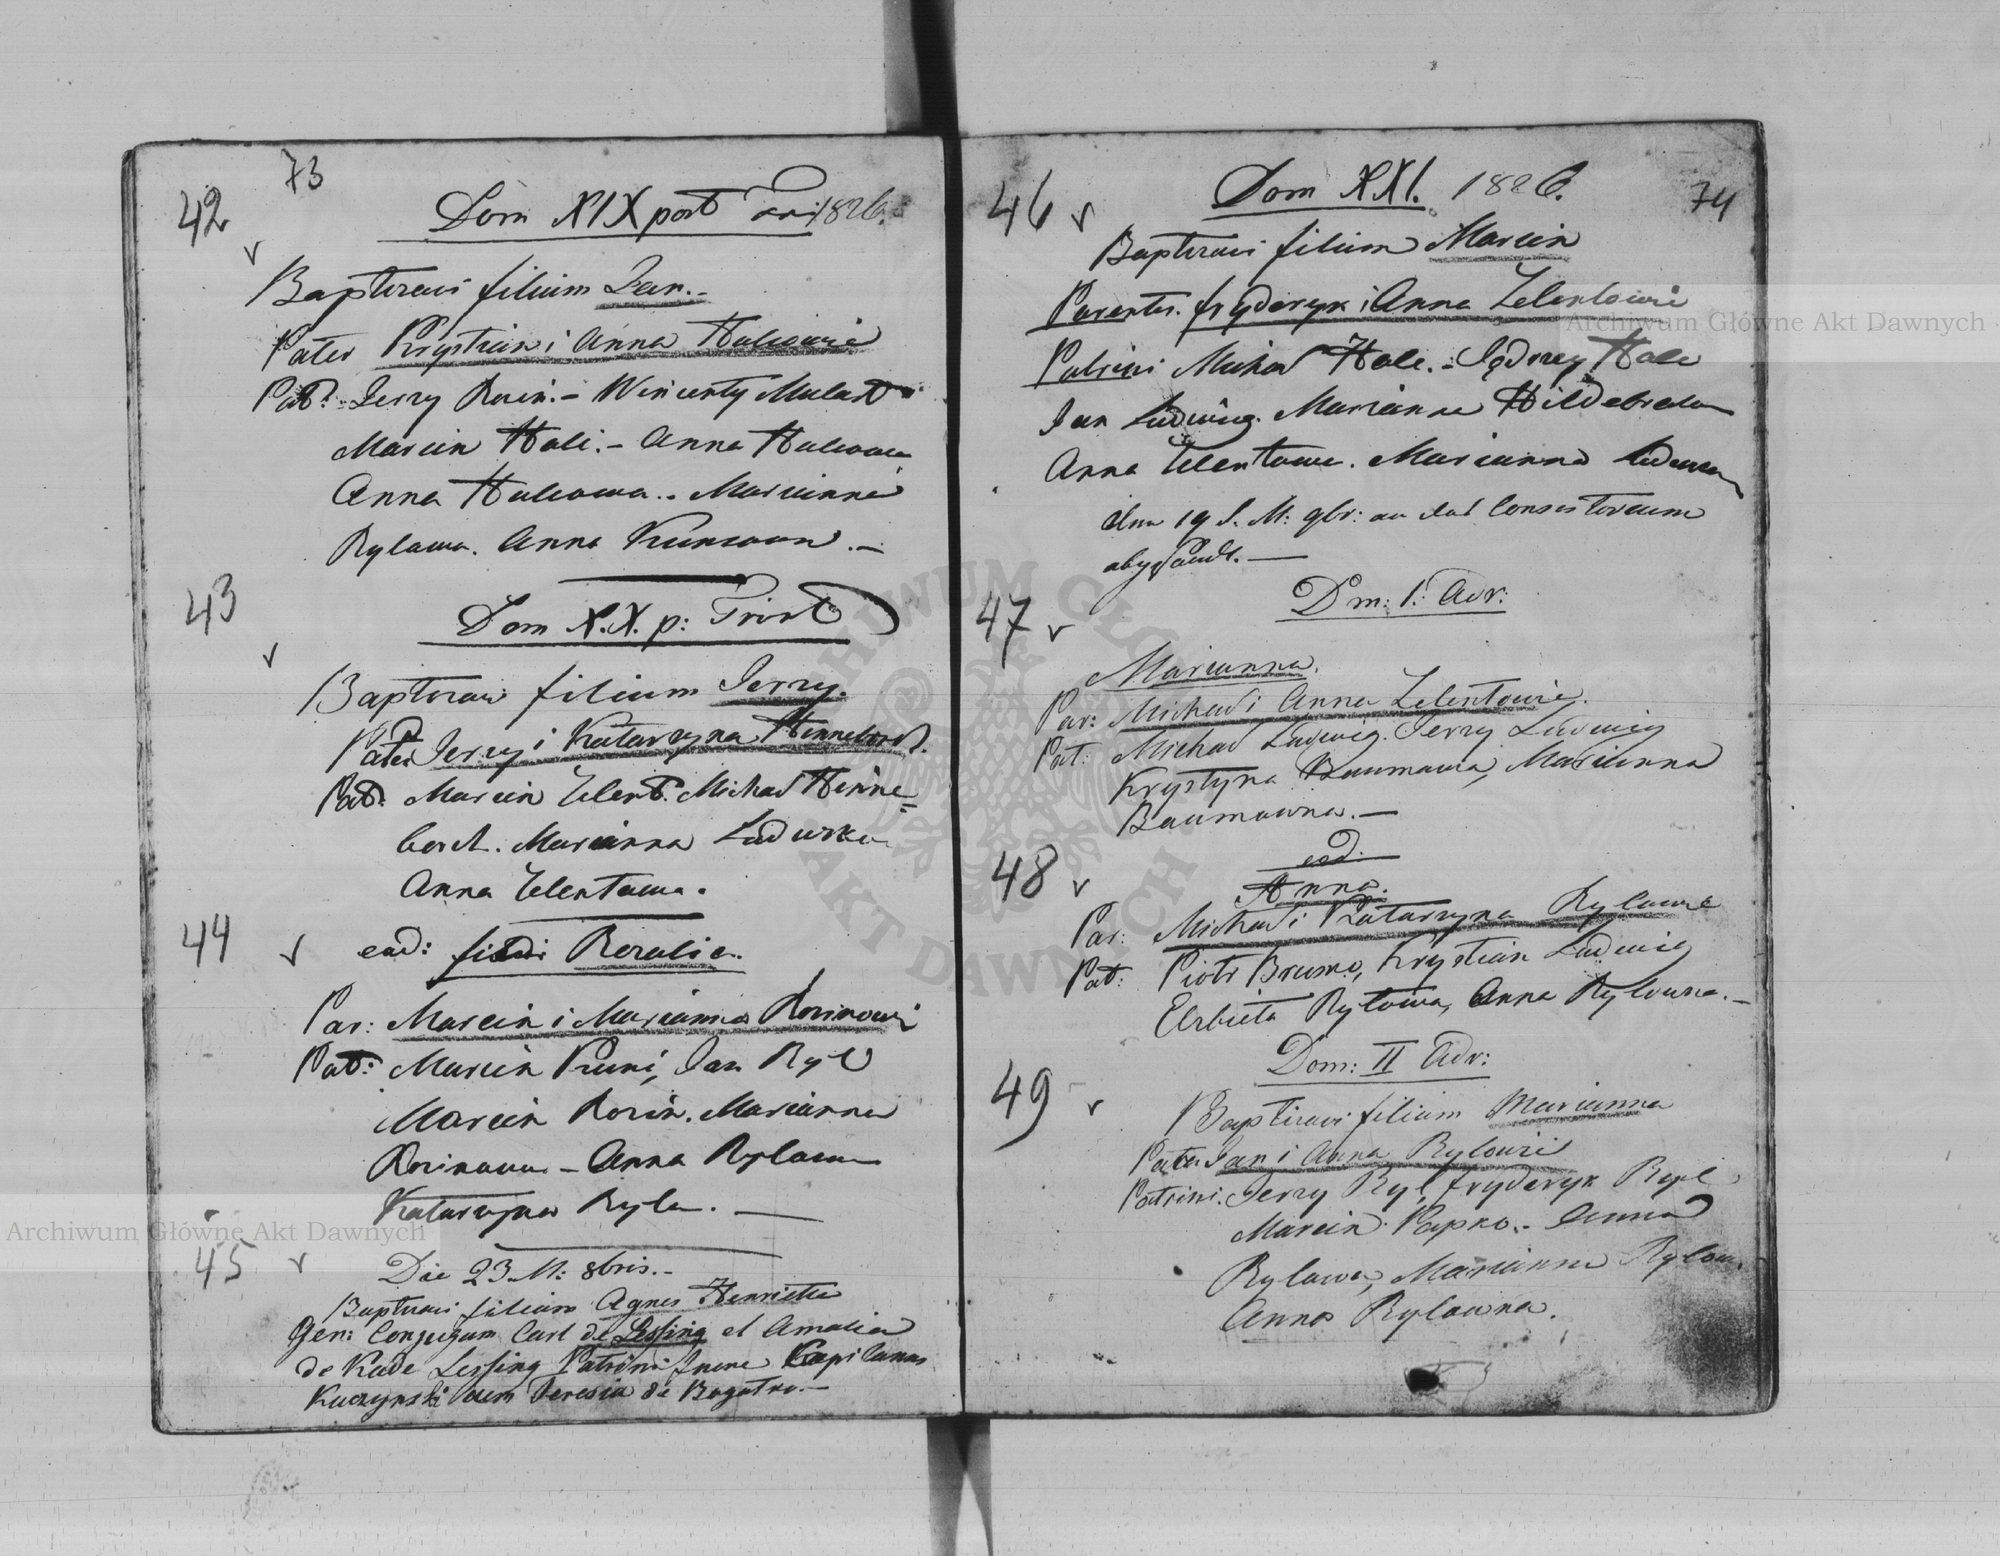 73
42
Dom XIX post Tri 1826.
Baptizavi filium Jan.-
Pater Krystian i Anna Halcowie
Pat: Jerzy Rozin.- Wincenty
Marcin Hali.- Anna
Anna Halcowa.. Marianna
Rylowa. Anna
43
Dom X.X. p: Trinit
Baptizavi filium Jerzy.
Pater Jerzy i Katarzyna Henneborch.
Pat: Marcin Zelent. Michał Henne=
borch. Marianna
Anna Zelentowa.
44
ead: Rozalia.
Par: Marcin i Marianna Rozinowi
Pat: Marcin Kuni, Jan Ryl
Marcin Rozin. Marianna
Rozinowa - Anna Rylowa
Katarzyna Ryla. —
45
Die 23 M: 8bris.-
Baptizavi filiam Agnes Henriette
Gen: Conjugum Carl de Lessing et Amalia
de Kade Lessing Patrini Kapitanus
Kuczynski cum Teresia de Bogatko.—
46
Dom XXI. 1826.
74
Baptizavi filium Marcin
Parentes. Fryderyk i Anna Zelentowie
Patrini Michał Hale.- Jędrzey Hale
Jan Ludwig. Marianna
Anna Zelentowa. Marianna
19 d. M: 9br: an das Consistorium
—
47
Dm: 1: Adv:
Marianna.
Par: Michał i Anna Zelentowie.
Pat: Michał Ludwig. Jerzy Ludwig
Krystyna Baumowa, Marianna
Baumowna.—
48
ead:
Anna.
Par: Michał i Katarzyna Rylowie
Pat: Piotr Brumo, Krystian Ludwig
Elzbieta Rylowa, Anna Rylowna.—
49
Dom: II Adv:
Baptizavi filiam Marianna
Pater Jan i Anna Rylowie
Patrini. Jerzy Ryl, Fryderyk Ryl
Marcin Papko.- Anna
Rylowa, Marianna
Anna Rylowna.
Archiwum Główne Akt Dawnych
Archiwum Główne Akt Dawnych
ARCHIWUM GŁÓWNE AKT DAWNYCH